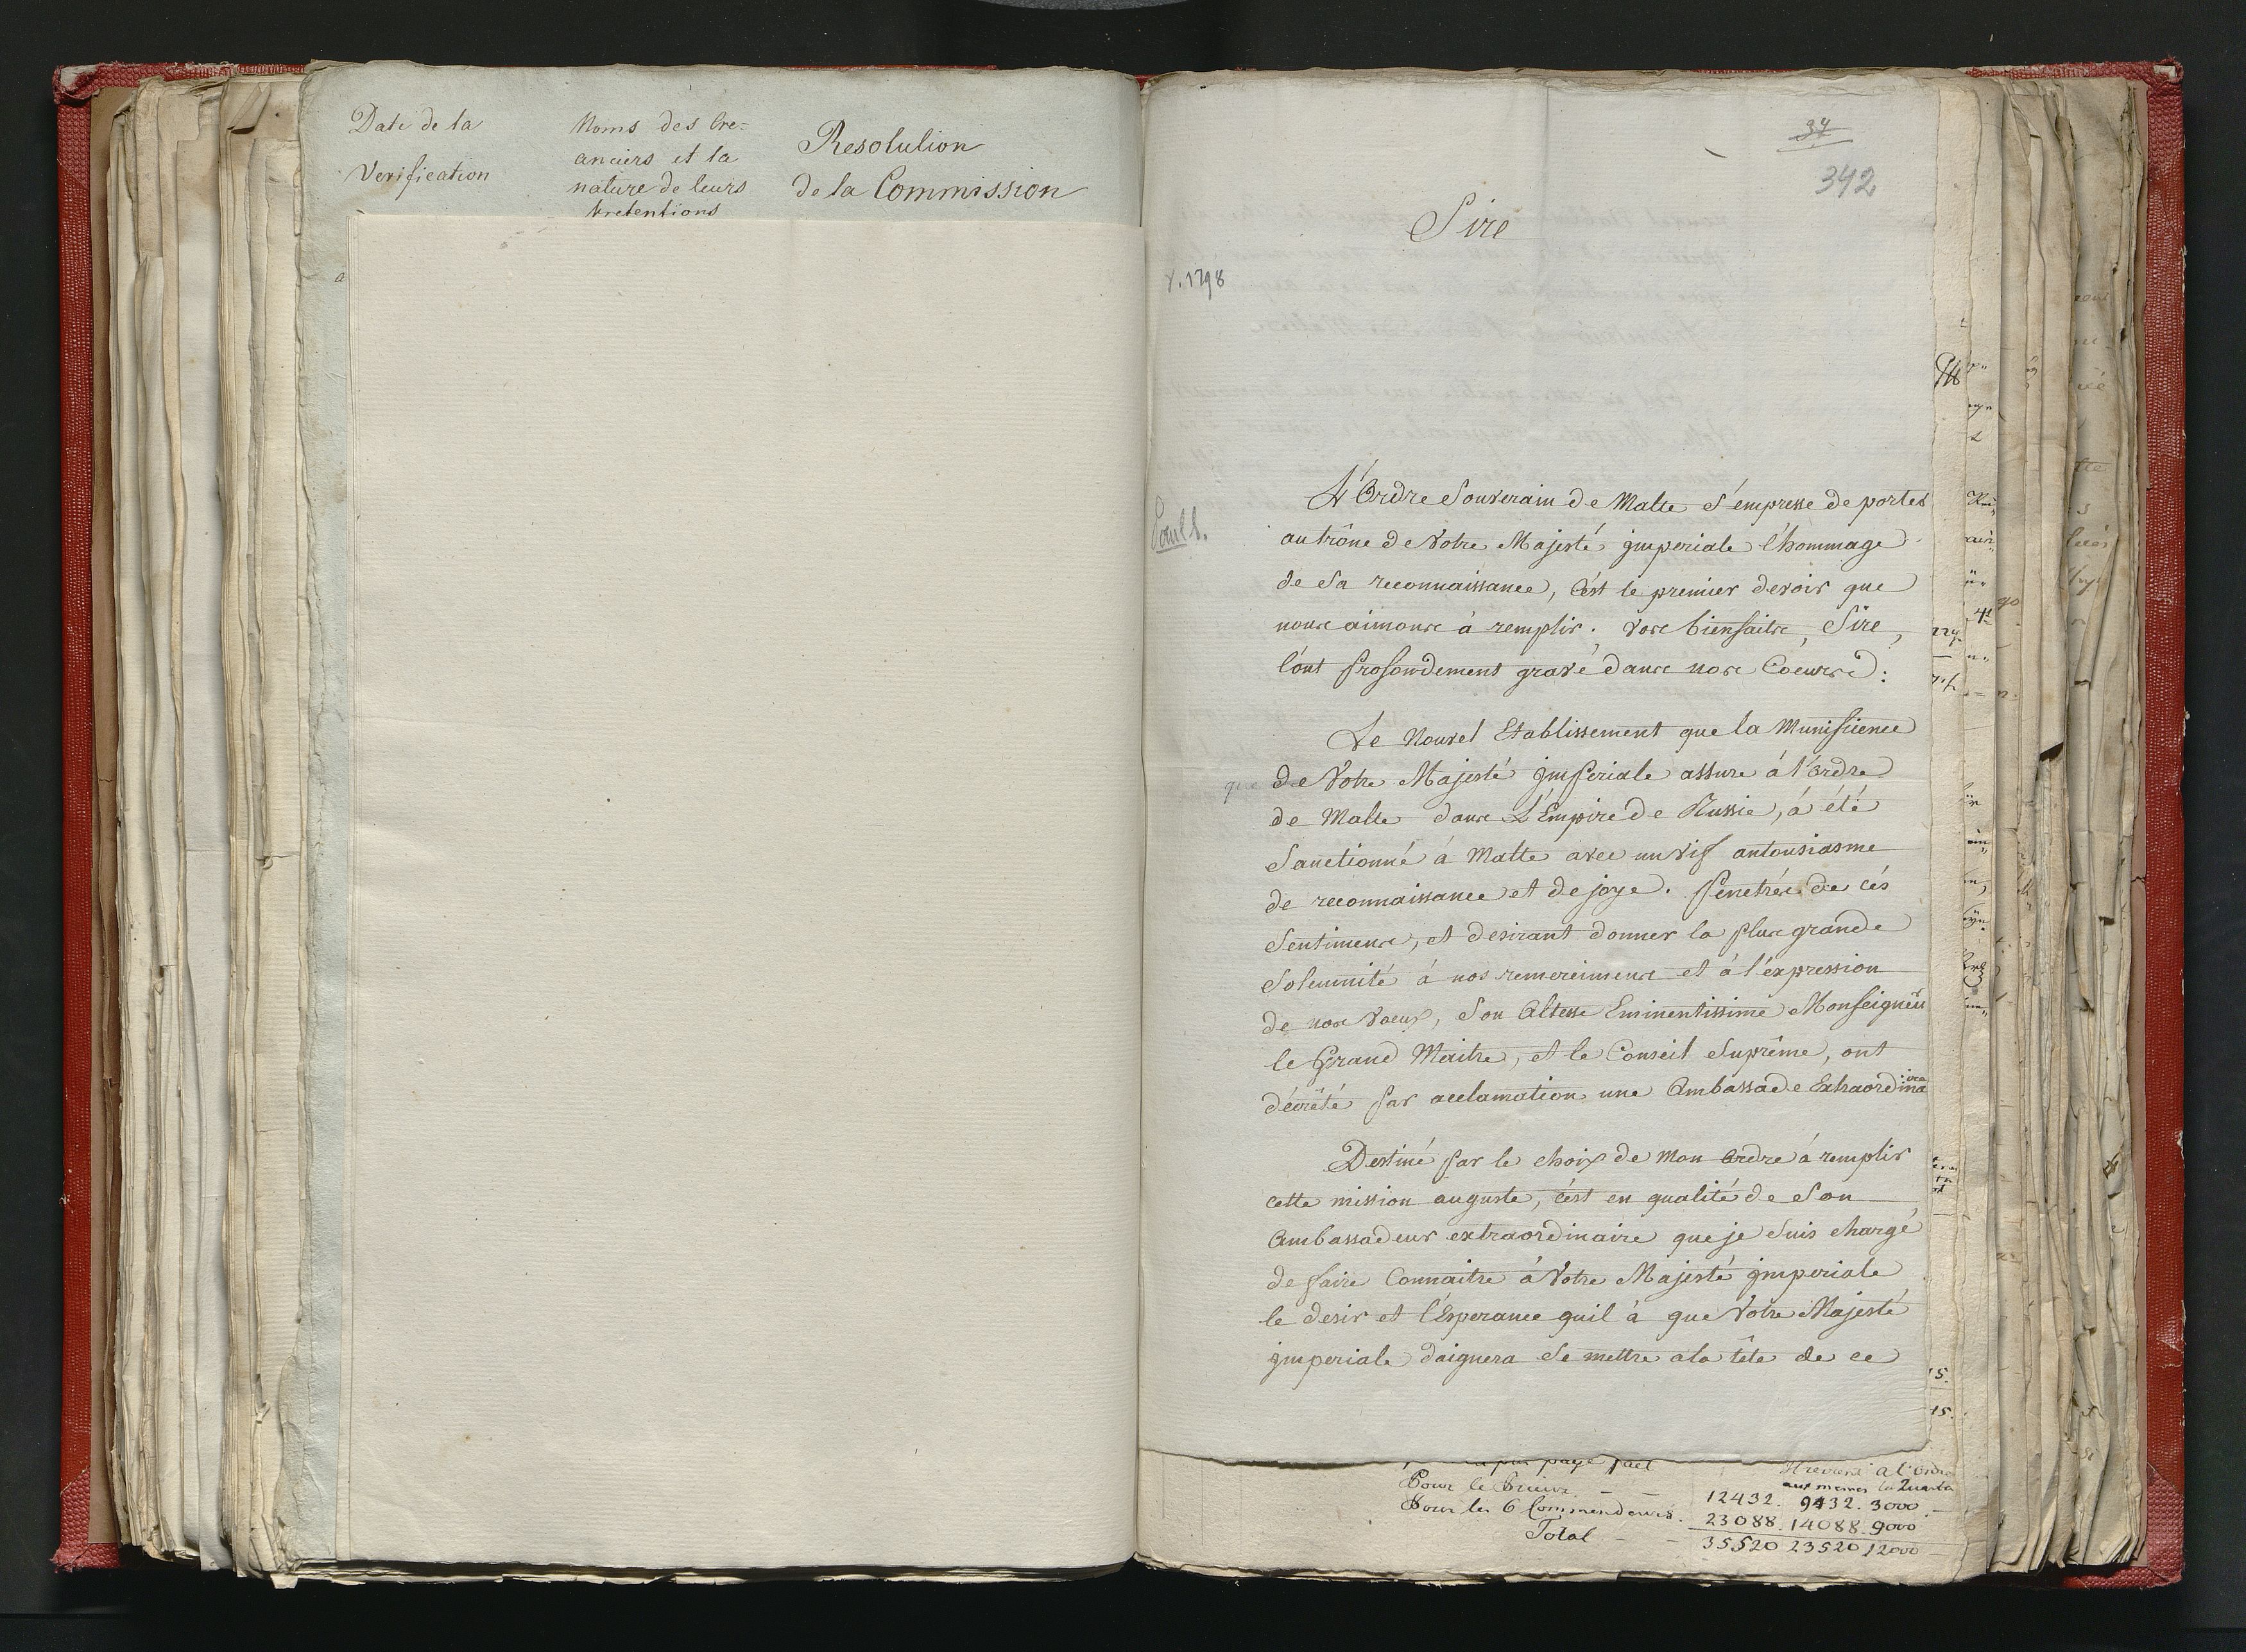 Date de la
Verification
Noms des Cre=
anciers et la
nature de leurs
Pretentions
Resolution
de la Commission
34
342
Sire
1798
L'Ordre Souverain de Malte s'empresse de porter
au trône de Votre Majesté jmperiale l'hommage
de sa reconnaissance, c'est le premier devoir que
nous aimons à remplir. Vos bienfaits, Sire,
l'ont profondement gravé dans nos Coeurs:
Le Nouvel Etablissement que la Munificence
que
de Votre Majesté jmperiale assure à l'ordre
de Malte dans L'Empire de Russie, à été
Sanctionné à Malte avec un vif antousiasme
de reconnaissance et de joye. Penetrés de cés
Sentimens, et desirant donner la plus grande
Solemnité à nos remercimens et à l'expression
de nos voeux, Son Altesse Eminentissime Monseigneur
le Grand Maitre, et le Conseil Suprême, ont
décrêté par acclamation une Ambassade Extraordinaire
Destiné par le choix de mon Ordre à remplir
cette mission auguste, c'est en qualité de Son
Ambassadeur extraordinaire que je Suis chargé
de faire Connaitre à Votre Majesté jmperiale
le desir et l'Esperance quil à que Votre Majesté
jmperiale daignera Se mettre a la tête de ce
Pour le Prieur - - 12432. 9432. 3000
Pour les 6 Commendeurs. 23088. 14088. 9000
Total - - 35520 23520 12000